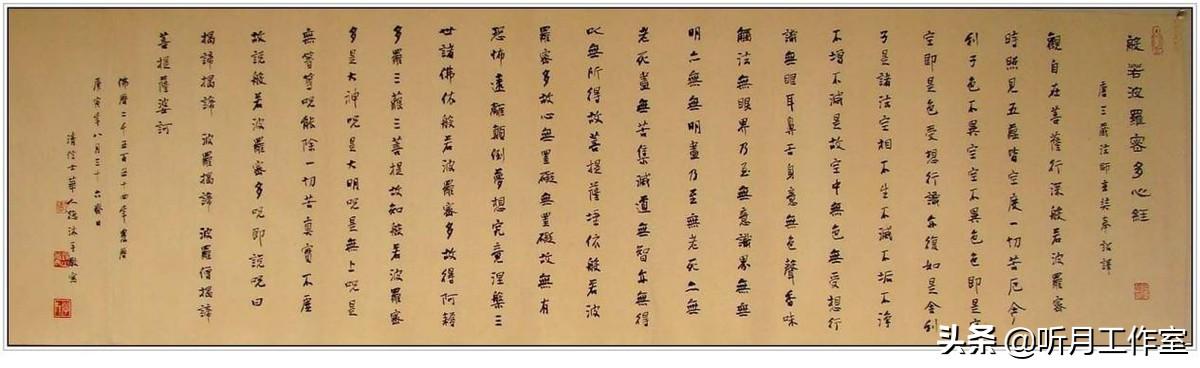 般若波羅密多心經
唐三藏法師玄奘奉詔譯
觀自在菩薩行深般若波羅密
時照見五蘊皆空度一切苦厄舍
利子色不異空空不異色色即是空
空即是色受想行識亦復如是舍利
子是諸法空相不生不滅不垢不淨
不增不減是故空中無色無受想行
識無眼耳鼻舌身意無色聲香味
觸法無眼界乃至無意識界無無
明亦無無明盡乃至無老死亦無
老死盡無苦集滅道無智亦無得
以無所得故菩提薩埵依般若波
羅密多故心無罣礙無罣礙故無有
恐怖遠離顛倒夢想究竟涅槃三
世諸佛依般若波羅密多故得阿耨
多羅三藐三菩提故知般若波羅密
多是大神呪是大明呪是無上呪是
無等等呪能除一切苦真實不虛
故說般若波羅密多呪即說呪曰
揭諦揭諦 波羅揭諦 波羅僧揭諦
菩提薩婆訶
佛曆二千五百五十四年農曆
庚寅年八月三十六日
清信士華人
头条 @听月工作室